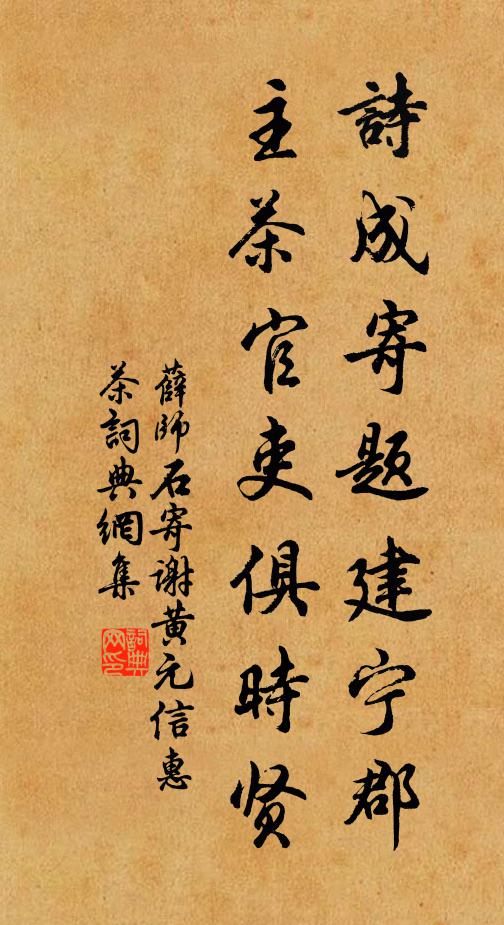 詩成寄题建宁郡
主茶官吏俱時贤
薛師石寄謝黄元信惠
茶詞典網集
詞典网印